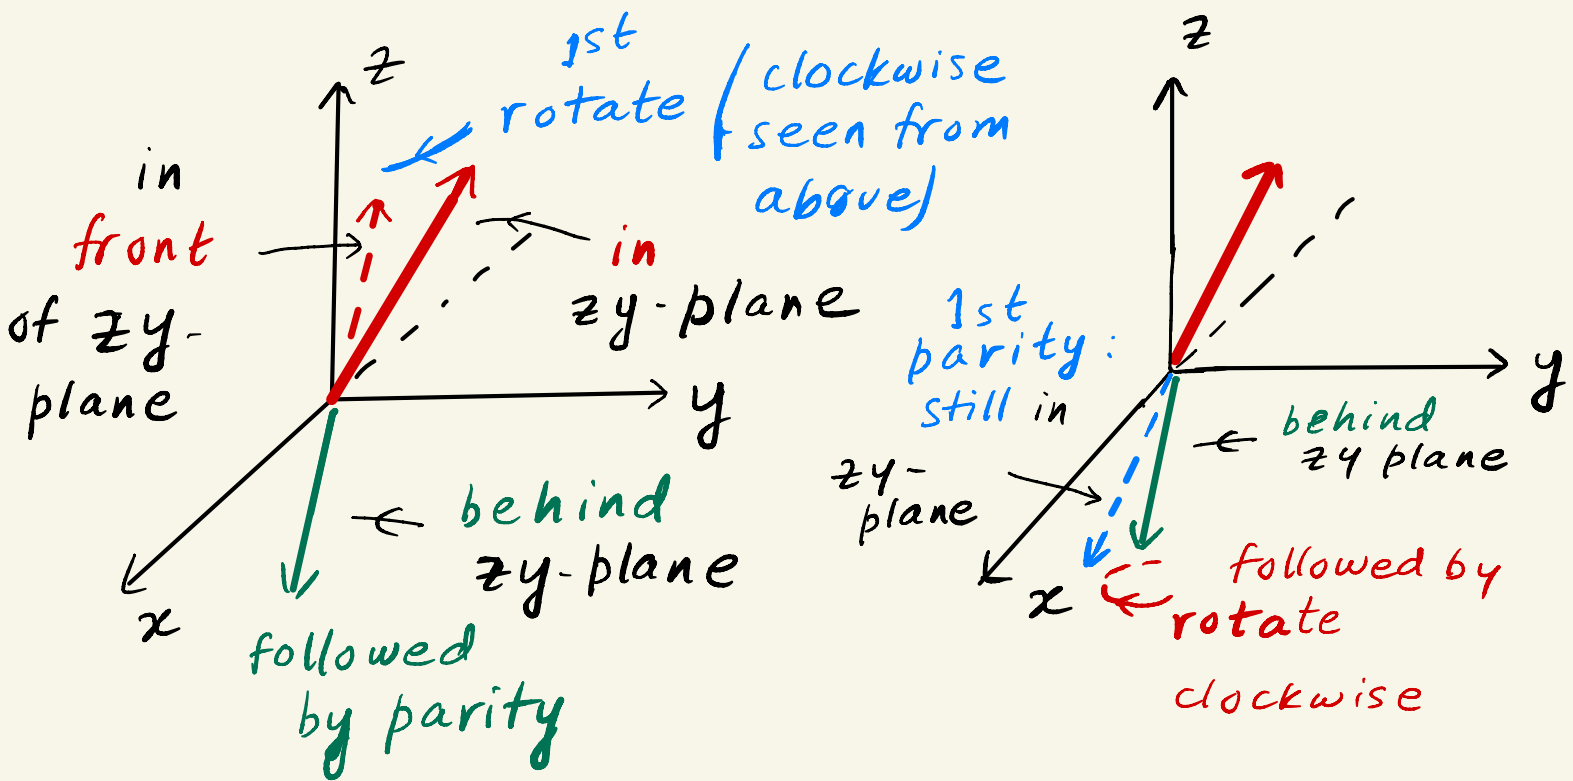 z
1st
rotate (clockwise
seen from
above)
in
front
of zy-
plane
in
zy-plane
y
behind
zy-plane
x
followed
by parity
z
1st
parity:
still in
zy-
plane
y
behind
zy plane
x
followed by
rotate
clockwise